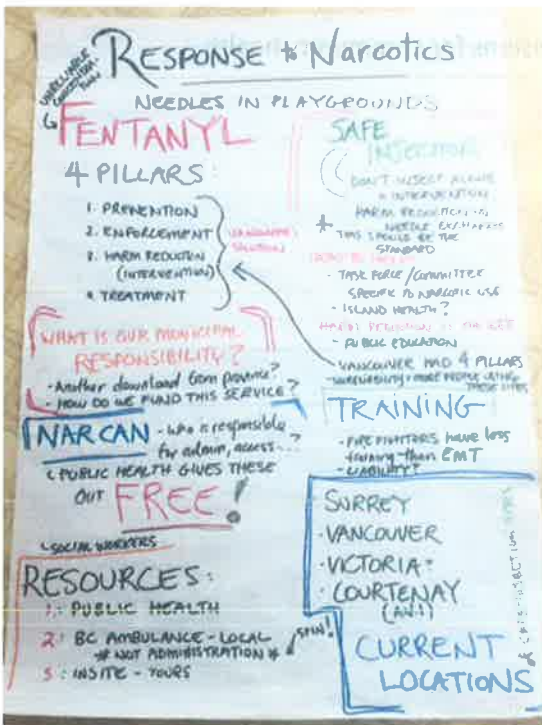 UNRELIABLE
RESPONSE to Narcotics
NEEDLES IN PLAYGROUNDS
FENTANYL
4 PILLARS:
1. PREVENTION
2. ENFORCEMENT
3. HARM REDUCTION
(INTERVENTION)
4. TREATMENT
WHAT IS OUR MUNICIPAL
RESPONSIBILITY?
- Another download from province?
- HOW DO WE FUND THIS SERVICE?
NARCAN - who is responsible
for admin, access...?
PUBLIC HEALTH GIVES THESE
OUT FREE!
SOCIAL WORKERS
RESOURCES:
1: PUBLIC HEALTH
2: BC AMBULANCE - LOCAL
* NOT ADMINISTRATION * SPIN!
3: INSITE - TOURS
SAFE
INJECTION
DON'T INJECT ALONE
INTERVENTION
HARM REDUCTION
NEEDLE
* THIS SHOULD BE THE
STANDARD
- TASK FORCE/COMMITTEE
SPECIFIC TO NARCOTIC USE
- ISLAND HEALTH?
HARM REDUCTION
- PUBLIC EDUCATION
- VANCOUVER HAD 4 PILLARS
MORE PEOPLE USING
THESE SITES
TRAINING
- FIREFIGHTERS have less
training than EMT
- LIABILITY?
SURREY
· VANCOUVER
· VICTORIA
· COURTENAY
CURRENT
LOCATIONS